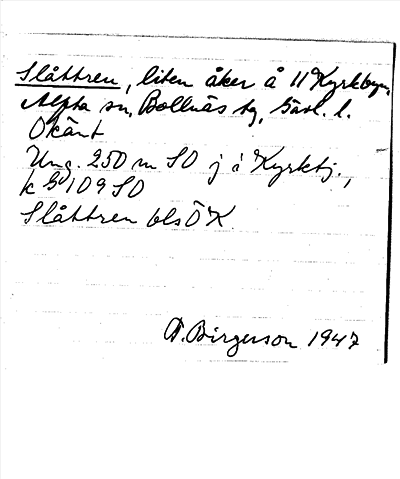 Slåttren, liten åker å 11 Kyrkbyn,
Alfta sn, Bollnäs tg, Gävl. l.
Okänt
Ung. 250 m SO j å Kyrkbj.,
k 109 SO
Slåttren bls Ö K
D. Birgerson 1947